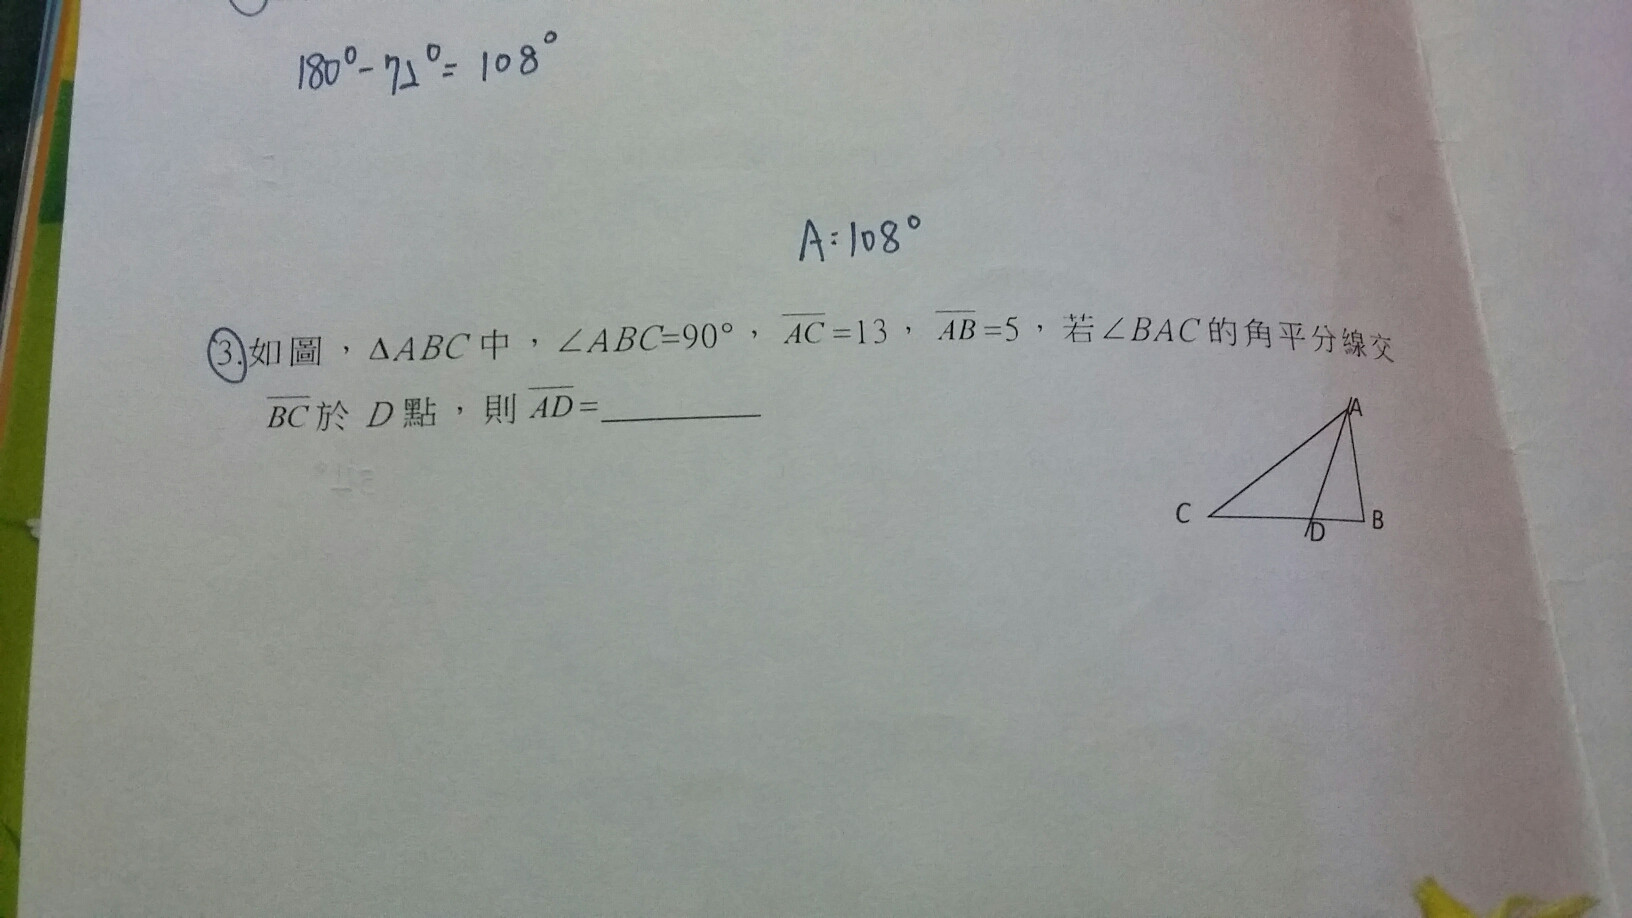 180°-72°=108°
A:108°
3.如圖，ΔABC中，∠ABC=90°，AC=13，AB=5，若∠BAC的角平分線交
BC於 D點，則AD=__________
A
C
B
D